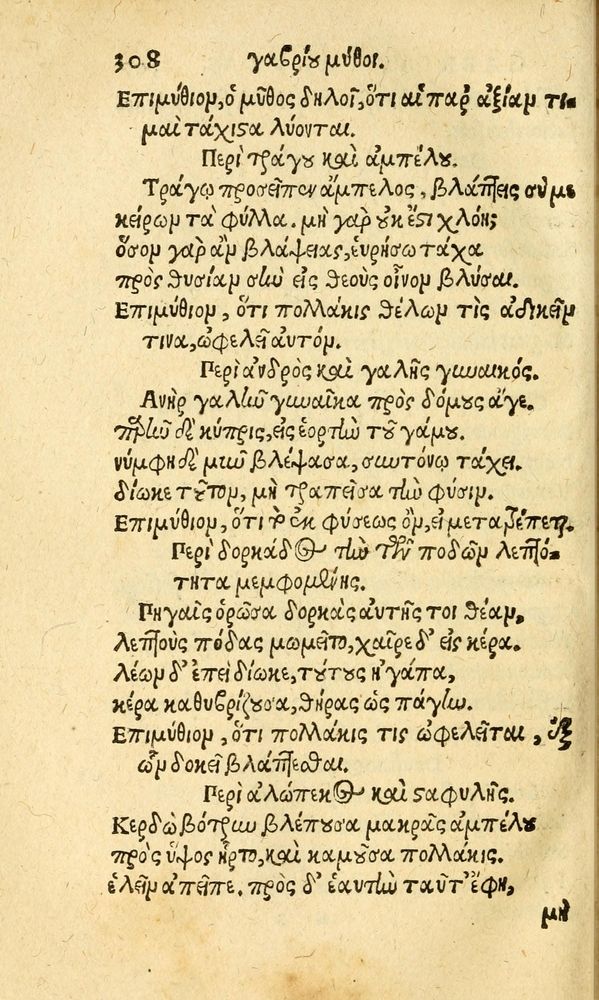 308 γαβρίου μῦθοι.
Επιμύθιον, ὁ μῦθος δηλοῖ, ὅτι αἱ παρ' ἀξίαν τι-
μαὶ τάχιστα λύονται.
Περὶ τράγου καὶ ἀμπέλου.
Τράγῳ προσεῖπεν ἄμπελος, βλάπτεις σύ με
κείρων τὰ φύλλα. μὴ γὰρ οὐκ ἔστι χλόη;
ὅσον γὰρ ἂν βλάψειας, εὑρήσω τάχα
πρὸς θυσίαν σὴν εἰς θεοὺς οἶνον βλύσαι.
Επιμύθιον, ὅτι πολλάκις θέλων τὶς ἀδικεῖν
τινα, ὠφελεῖ αὐτόν.
Περὶ ἀνδρὸς καὶ γαλῆς γυναικός.
Ανὴρ γαλῆν γυναῖκα πρὸς δόμους ἄγε.
παρῆν δὲ κύπρις, εἰς ἑορτὴν τοῦ γάμου.
νύμφη δὲ μῦν βλέψασα, συντόνῳ τάχει.
δίωκε τοῦτον, μὴ τραπεῖσα τὴν φύσιν.
Επιμύθιον, ὅτι τὸ ἐκ φύσεως ὂν, οὐ μετατρέπεται.
Περὶ δορκάδος τὴν τῶν ποδῶν λεπτό-
τητα μεμφομένης.
Πηγαῖς ὁρῶσα δορκὰς αὐτῆς τοι θέαν,
λεπτοὺς πόδας μωμεῖτο, χαῖρε δ' εἰς κέρα.
λέων δ' ἐπεὶ δίωκε, τούτους ἠγάπα,
κέρα καθυβρίζουσα, θήρας ὡς πάγην.
Επιμύθιον, ὅτι πολλάκις τις ὠφελεῖται, ἐξ
ὧν δοκεῖ βλάπτεσθαι.
Περὶ ἀλώπεκος καὶ σταφυλῆς.
Κερδὼ βότρυν βλέπουσα μακρᾶς ἀμπέλου
πρὸς ὕψος ἦρτο, καὶ καμοῦσα πολλάκις.
ἑλεῖν ἀπεῖπε. πρὸς δ' ἑαυτὴν ταῦτ' ἔφη,
μὴ